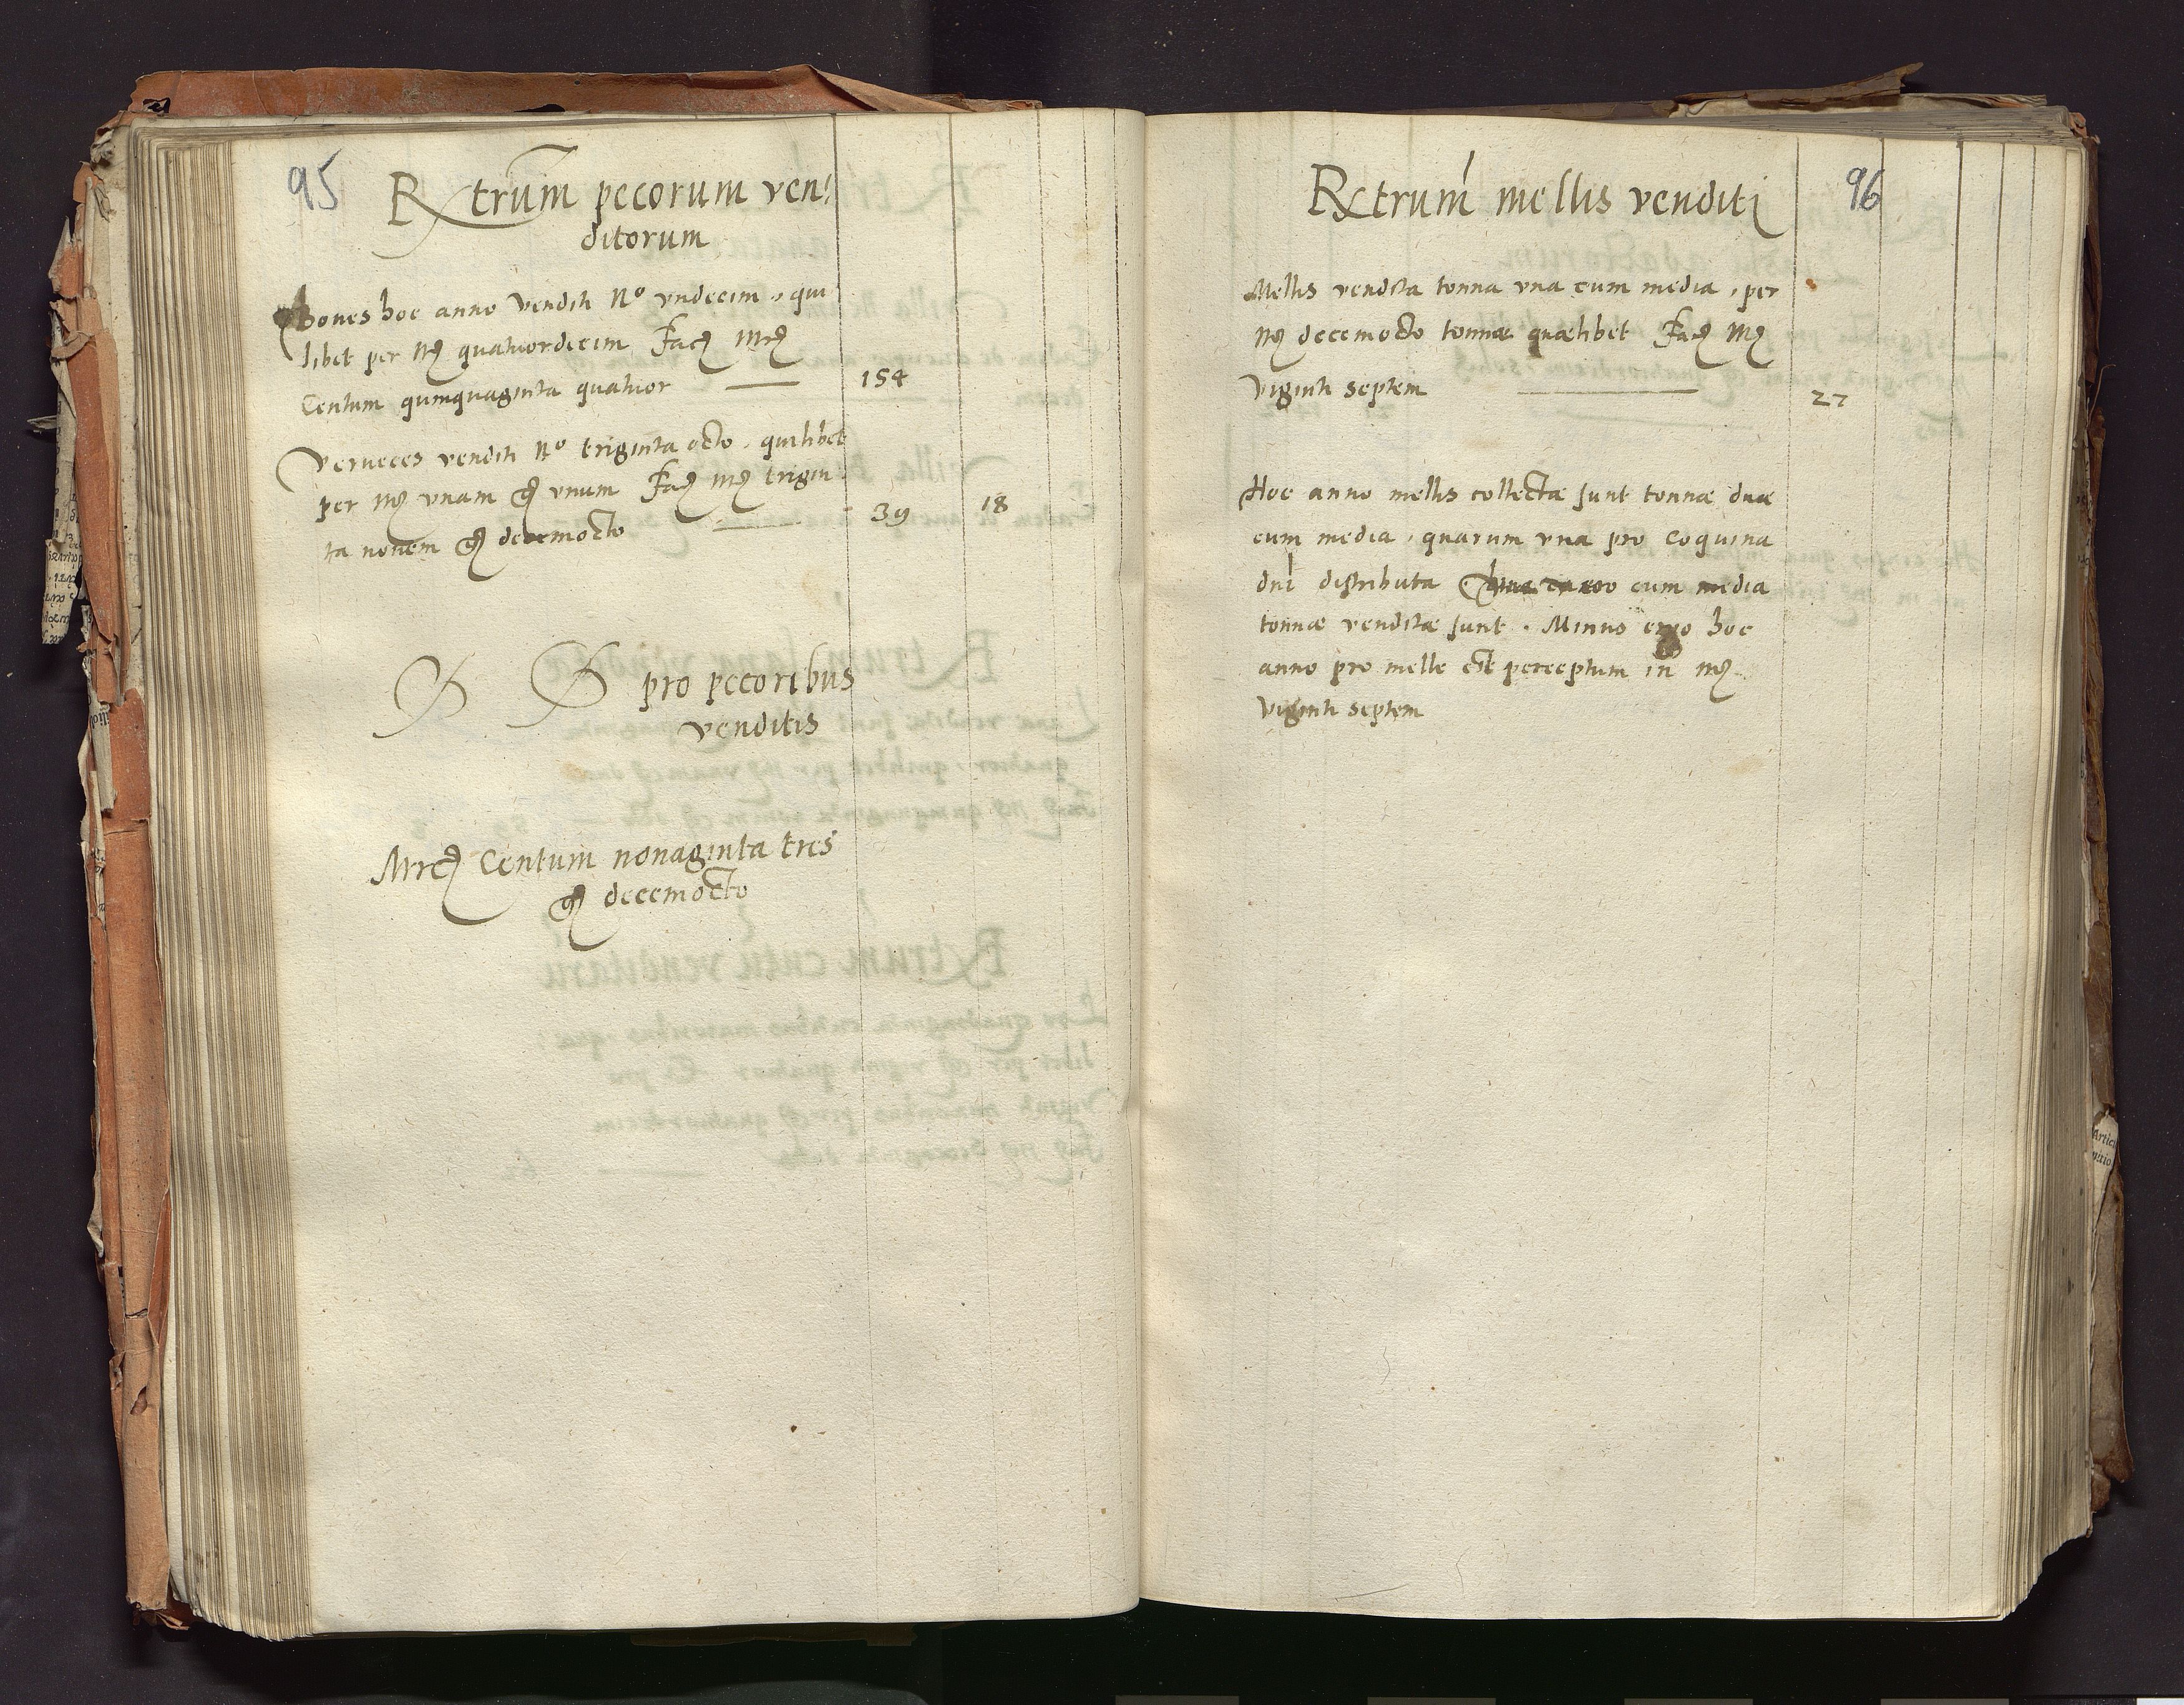 95
Rxtrum pecorum ven:
ditorum
Boues hoc anno venditi No vndecim, qui
libet per mrc quatuordecim Facit mrc
Centum quinquaginta quatuor 154
Verueces venditi No triginta octo, quilibet
per mrc vnam gr vnum Facit mrc trigin
ta nouem gr decemocto 39 18
pro pecoribus
venditis
Mrc Centum nonaginta tres
gr decemocto
96
Rxtrum mellis venditi
Mellis vendita tonna vna cum media, per
mrc decemocto tonnæ quælibet Facit mrc
Viginti septem 27
Hoc anno mellis collectæ sunt tonnæ duæ
cum media, quarum vna pro coquina
dni distributa cum media
tonnæ venditæ sunt. Minus ergo hoc
anno pro melle est perceptum in mrc
Viginti septem